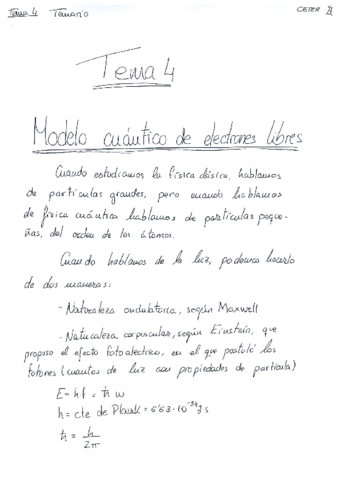 Tema 4 Temario CETER II
Tema 4
Modelo cuántico de electrones libres
Cuando estudiamos la física clásica, hablamos
de partículas grandes, pero cuando hablamos
de física cuántica hablamos de partículas peque-
ñas, del orden de los átomos.
Cuando hablamos de la luz, podemos hacerlo
de dos maneras:
- Naturaleza ondulatoria, según Maxwell
- Naturaleza corpuscular, según Einstein, que
propuso el efecto fotoelectrico, en el que postuló los
fotones (cuantos de luz con propiedades de partícula)
E = hf = ħ w
h = cte de Planck = 6'63·10⁻³⁴ J s
ħ = h / 2π